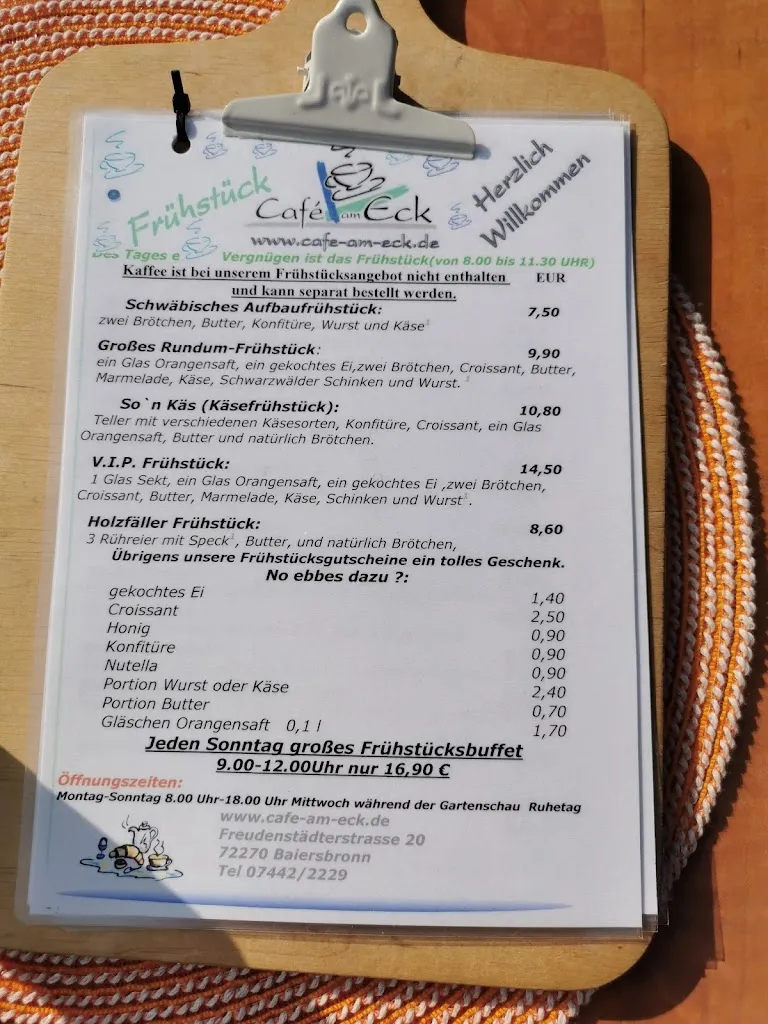 Frühstück
Café am Eck
Herzlich
Willkommen
www.cafe-am-eck.de
Tages e Vergnügen ist das Frühstück(von 8.00 bis 11.30 UHR)
Kaffee ist bei unserem Frühstücksangebot nicht enthalten EUR
und kann separat bestellt werden.
Schwäbisches Aufbaufrühstück: 7,50
zwei Brötchen, Butter, Konfitüre, Wurst und Käse
Großes Rundum-Frühstück: 9,90
ein Glas Orangensaft, ein gekochtes Ei,zwei Brötchen, Croissant, Butter,
Marmelade, Käse, Schwarzwälder Schinken und Wurst.
So`n Käs (Käsefrühstück): 10,80
Teller mit verschiedenen Käsesorten, Konfitüre, Croissant, ein Glas
Orangensaft, Butter und natürlich Brötchen.
V.I.P. Frühstück: 14,50
1 Glas Sekt, ein Glas Orangensaft, ein gekochtes Ei ,zwei Brötchen,
Croissant, Butter, Marmelade, Käse, Schinken und Wurst.
Holzfäller Frühstück: 8,60
3 Rühreier mit Speck, Butter, und natürlich Brötchen,
Übrigens unsere Frühstücksgutscheine ein tolles Geschenk.
No ebbes dazu ?:
gekochtes Ei 1,40
Croissant 2,50
Honig 0,90
Konfitüre 0,90
Nutella 0,90
Portion Wurst oder Käse 2,40
Portion Butter 0,70
Gläschen Orangensaft 0,1 l 1,70
Jeden Sonntag großes Frühstücksbuffet
9.00-12.00Uhr nur 16,90 €
Öffnungszeiten:
Montag-Sonntag 8.00 Uhr-18.00 Uhr Mittwoch während der Gartenschau Ruhetag
www.cafe-am-eck.de
Freudenstädterstrasse 20
72270 Baiersbronn
Tel 07442/2229